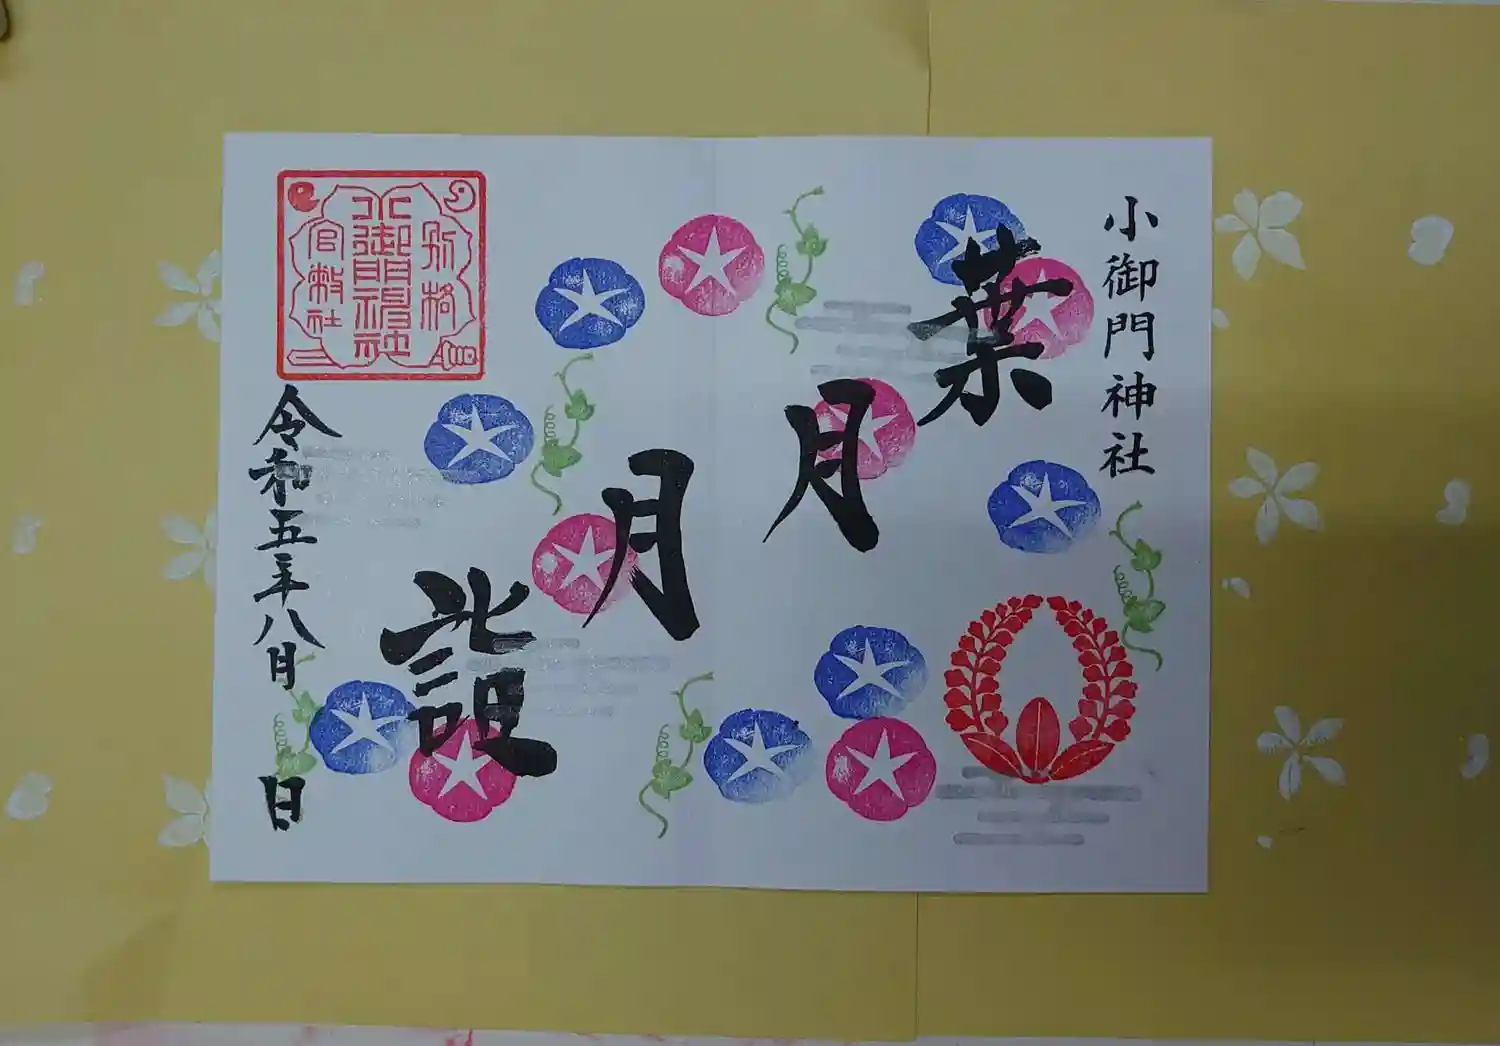 小御門神社
葉月
月詣
別格
小御門神社
官幣社
令和五年八月
日